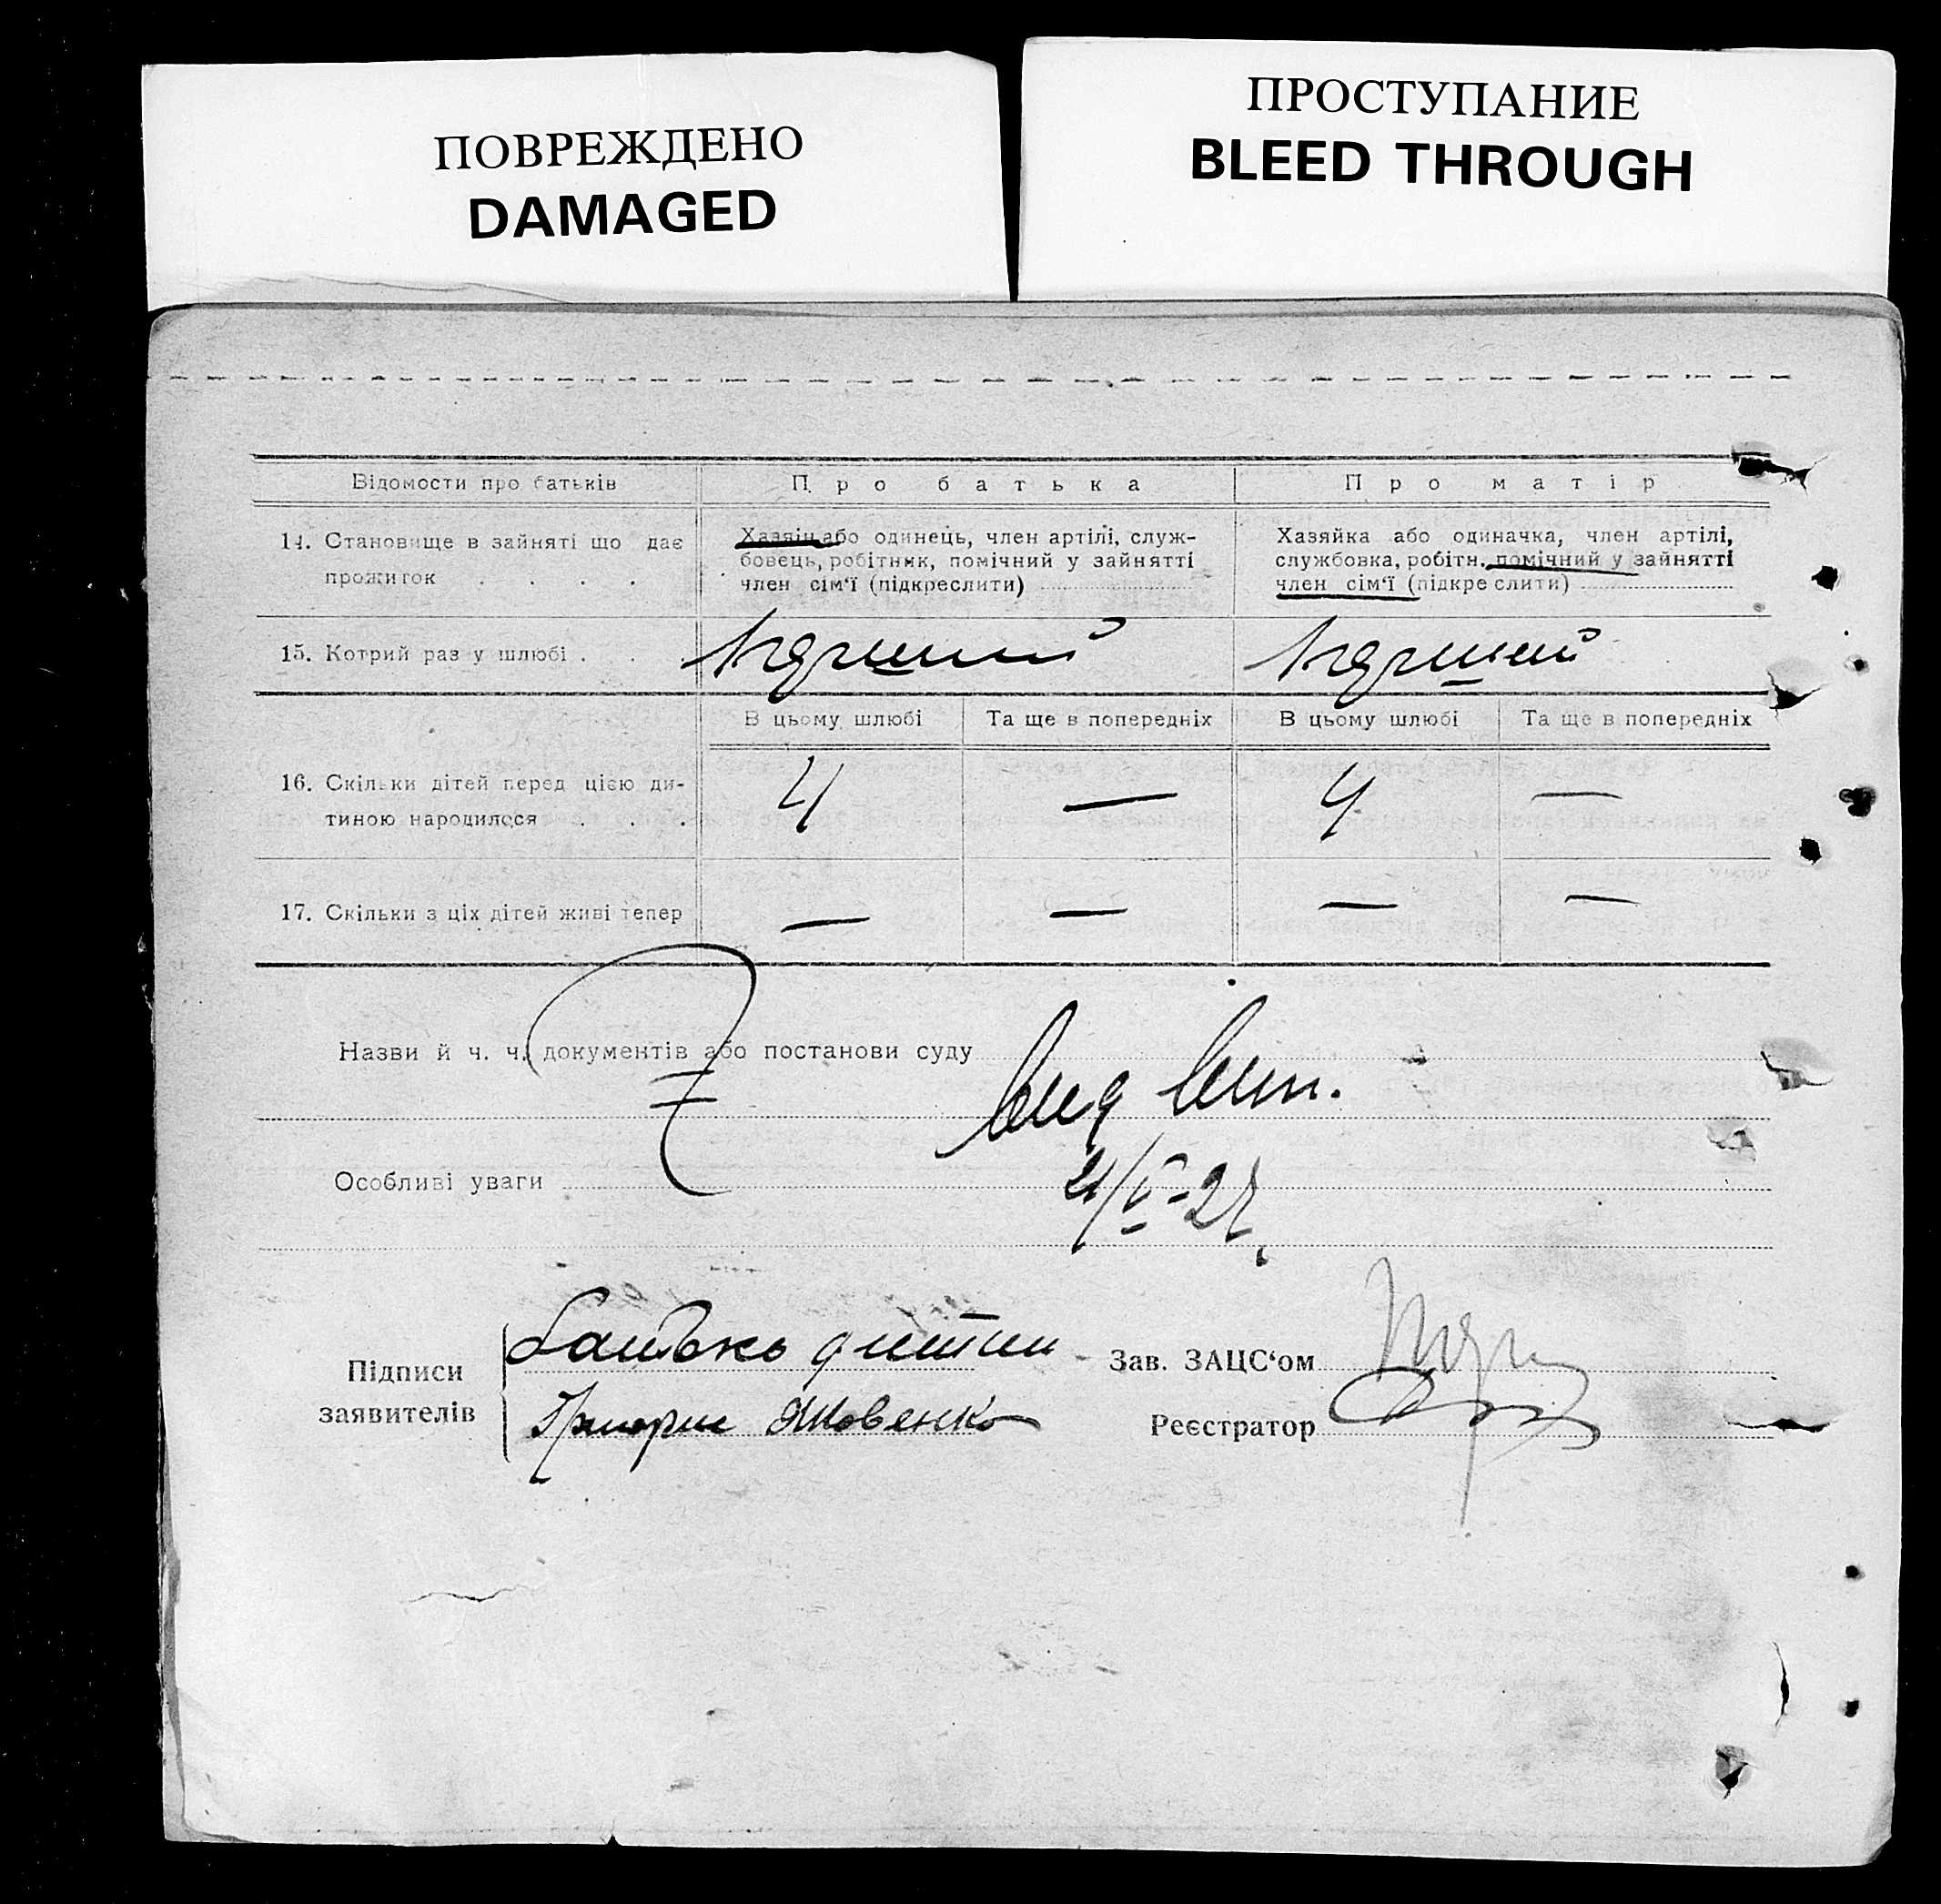 ПОВРЕЖДЕНО
DAMAGED
ПРОСТУПАНИЕ
BLEED THROUGH
Відомости про батьків
Про батька
Про матір
14. Становище в зайняті що дає
прожиток . . . .
Хазяїн або одинець, член артілі, служ-
бовець, робітник, помічний у зайнятті
член сім'ї (підкреслити)
Хазяйка або одиначка, член артілі,
службовка, робітн. помічний у зайнятті
член сім'ї (підкреслити)
15. Котрий раз у шлюбі . . .
В цьому шлюбі
Та ще в попередніх
В цьому шлюбі
Та ще в попередніх
16. Скільки дітей перед цією ди-
тиною народилося . . .
4 — 4 —
17. Скільки з ціх дітей живі тепер
— — — —
Назви й ч. ч. документів або постанови суду
Особливі уваги
Підписи
заявителів
батько дитини
Григорие Яковенко
Зав. ЗАЦС'ом
Реєстратор